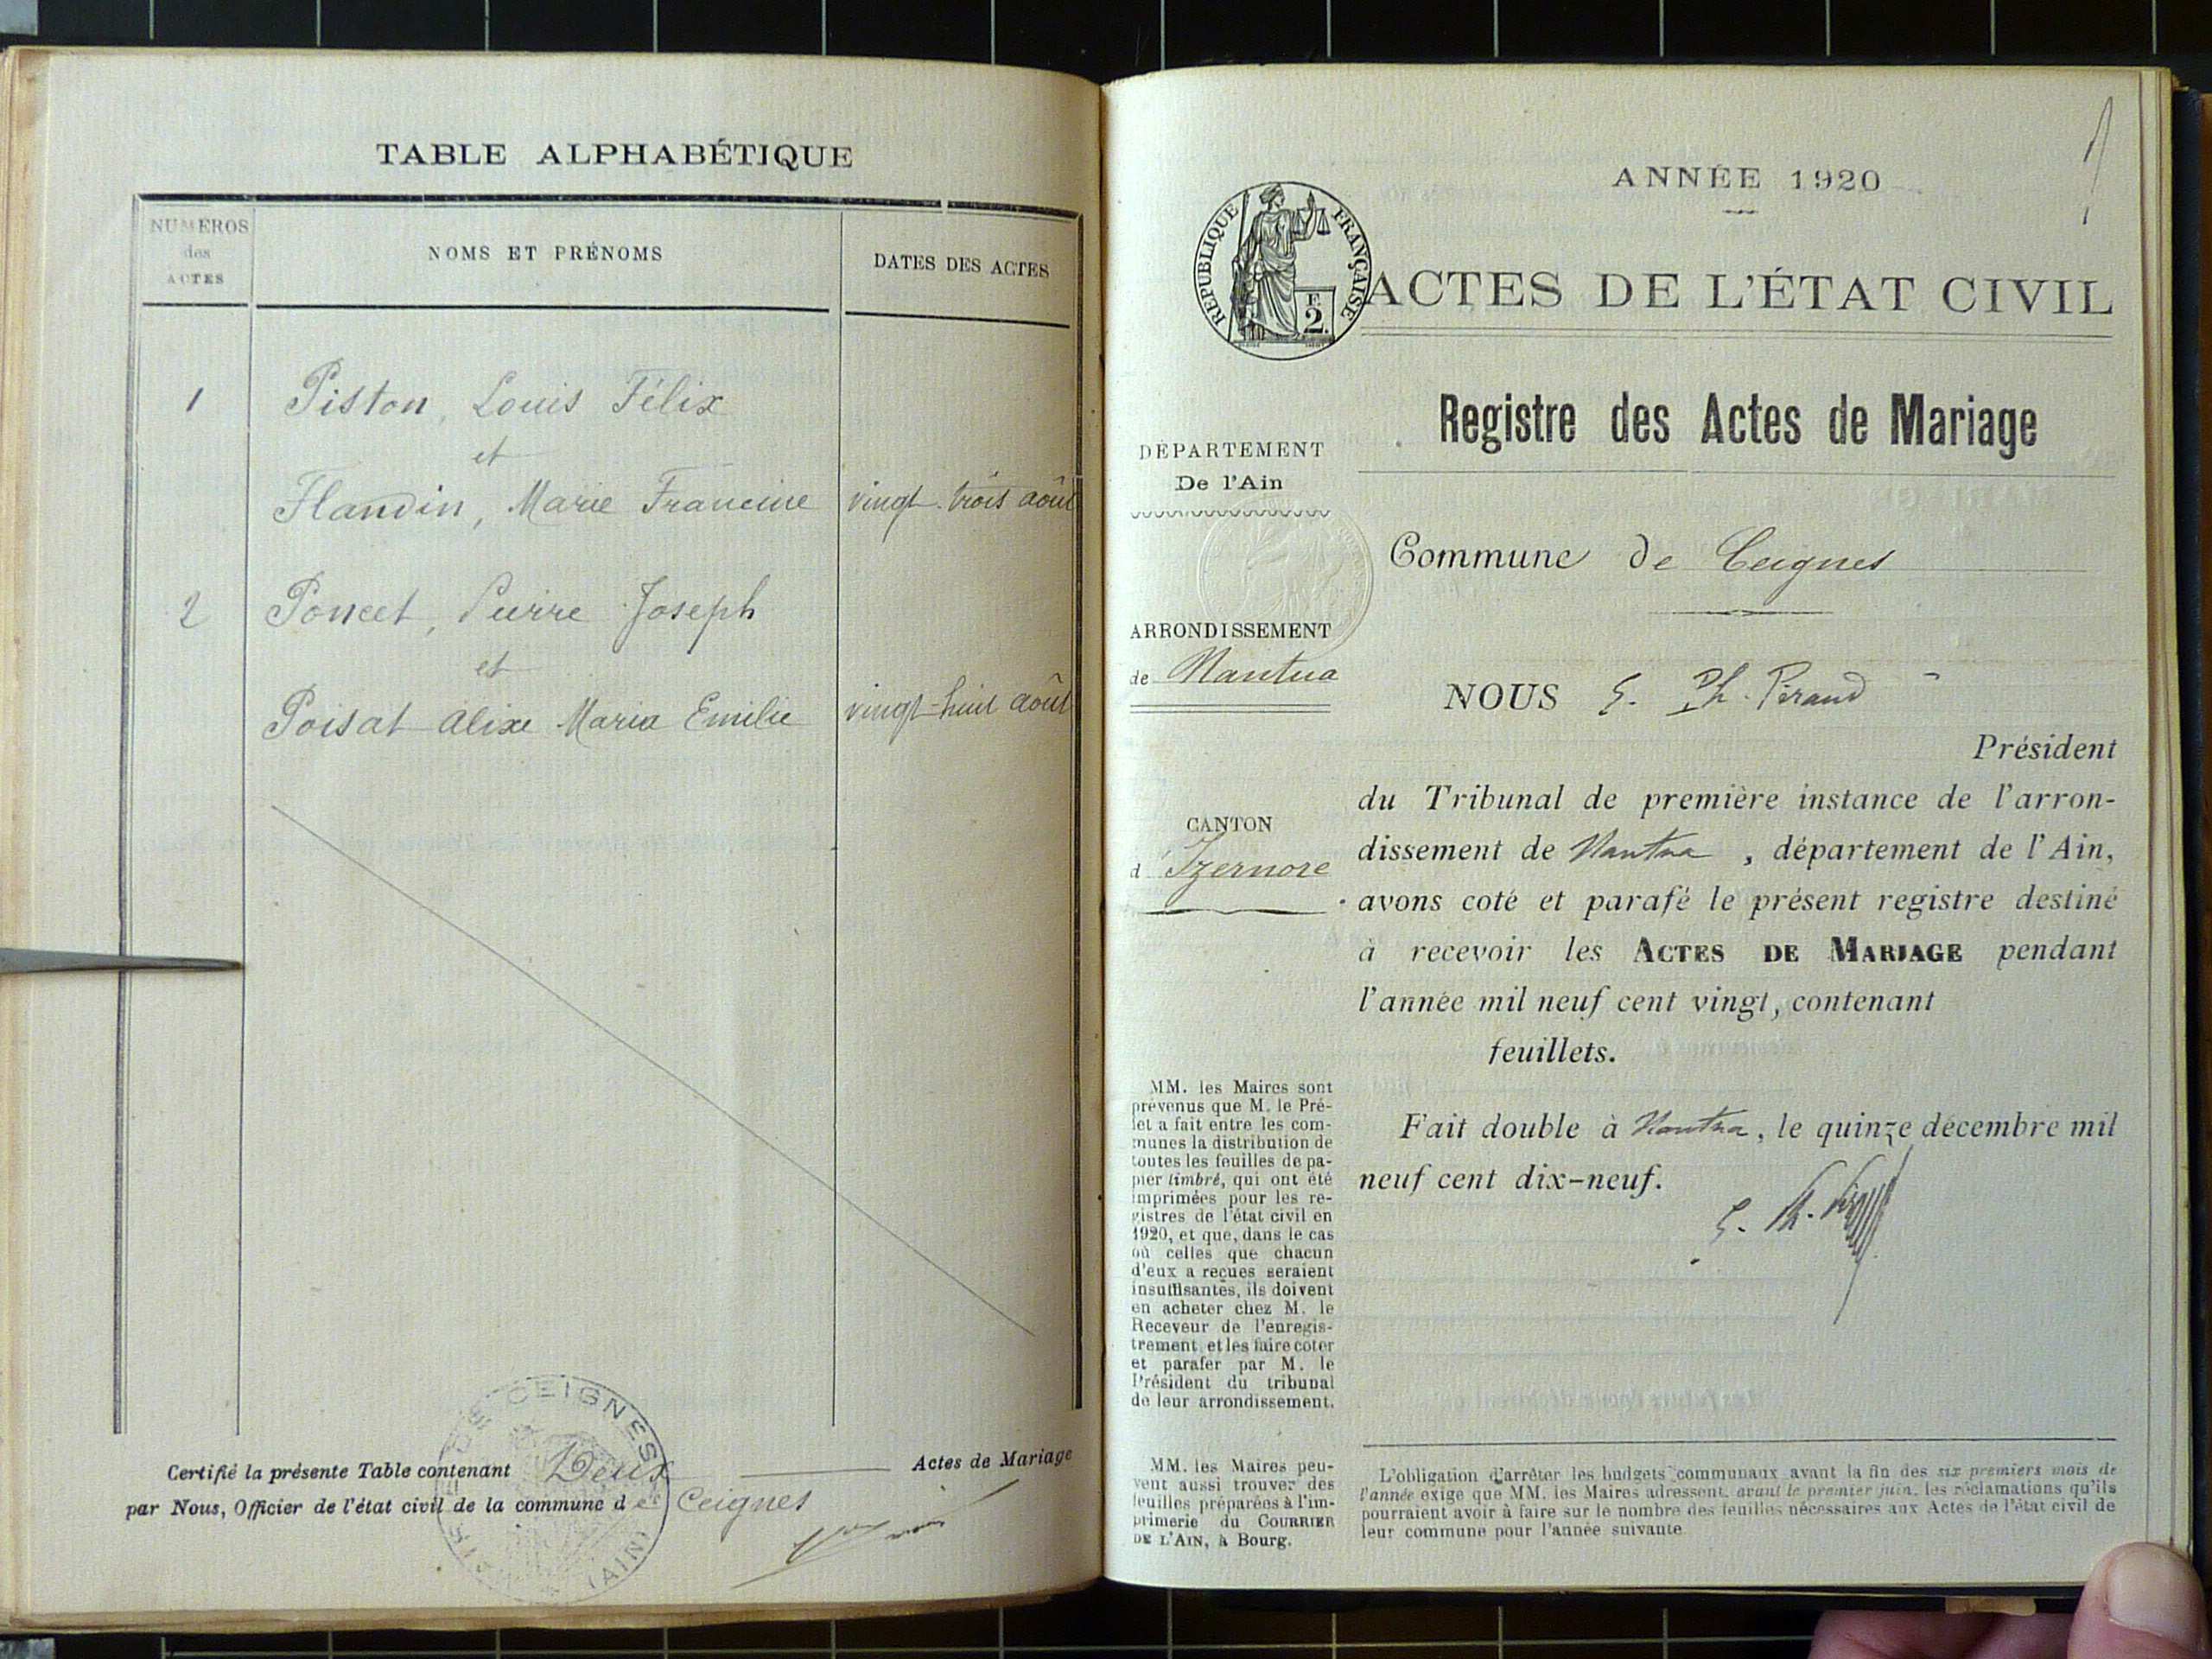 TABLE ALPHABÉTIQUE
NUMÉROS
des
ACTES
NOMS ET PRÉNOMS
DATES DES ACTES
1
Piston, Louis Félix
et
Flandin, Marie Francine
vingt-trois août
2
Poncet, Pierre Joseph
et
Poisat Alixe Maria Emilie
vingt-huit août
Certifié la présente Table contenant Deux Actes de Mariage
par Nous, Officier de l'état civil de la commune de Ceignes
DE CEIGNES
(AIN)
ANNÉE 1920
RÉPUBLIQUE FRANÇAISE
F.
2.
ACTES DE L'ÉTAT CIVIL
Registre des Actes de Mariage
DÉPARTEMENT
De l'Ain
Commune de Ceignes
ARRONDISSEMENT
de Nantua
CANTON
d'Izernore
NOUS
Président
du Tribunal de première instance de l'arron-
dissement de Nantua, département de l'Ain,
avons coté et parafé le présent registre destiné
à recevoir les ACTES DE MARIAGE pendant
l'année mil neuf cent vingt, contenant
feuillets.
Fait double à Nantua, le quinze décembre mil
neuf cent dix-neuf.
MM. les Maires sont
prévenus que M. le Pré-
fet a fait entre les com-
munes la distribution de
toutes les feuilles de pa-
pier timbré, qui ont été
imprimées pour les re-
gistres de l'état civil en
1920, et que, dans le cas
où celles que chacun
d'eux a reçues seraient
insuffisantes, ils doivent
en acheter chez M. le
Receveur de l'enregis-
trement, et les faire coter
et parafer par M. le
Président du tribunal
de leur arrondissement.
MM. les Maires peu-
vent aussi trouver des
feuilles préparées à l'im-
primerie du COURRIER
DE L'AIN, à Bourg.
L'obligation d'arrêter les budgets communaux avant la fin des six premiers mois de
l'année exige que MM. les Maires adressent, avant le premier juin, les réclamations qu'ils
pourraient avoir à faire sur le nombre des feuilles nécessaires aux Actes de l'état civil de
leur commune pour l'année suivante